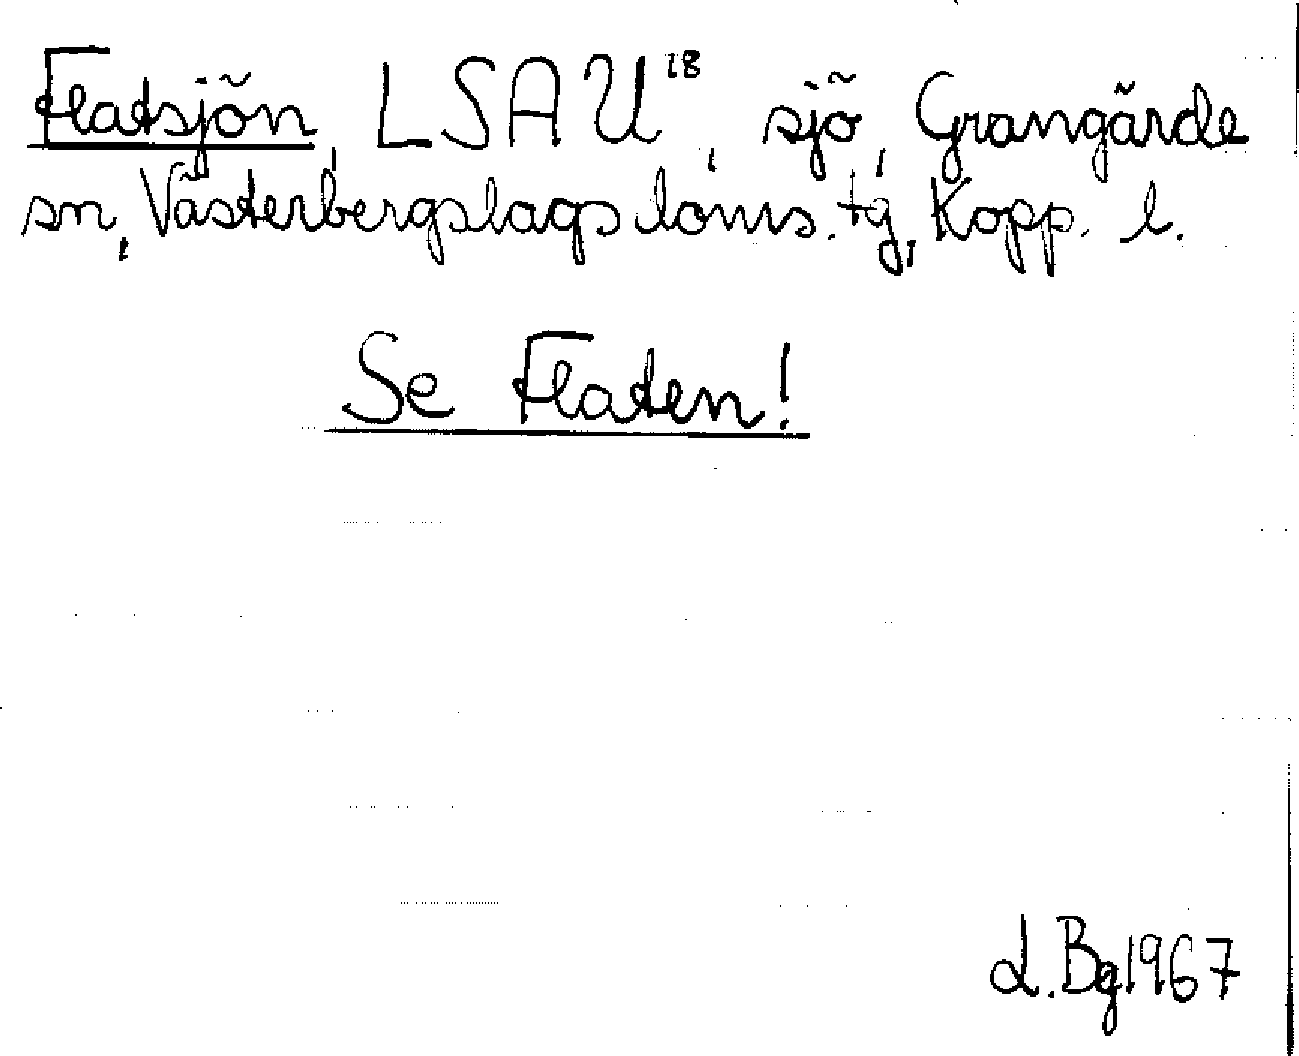 Flatsjön, LSAU¹⁸, sjö, Grangärde
sn, Västerbergslags doms. tg, Kopp. l.
Se Flaten!
L. Bg 1967